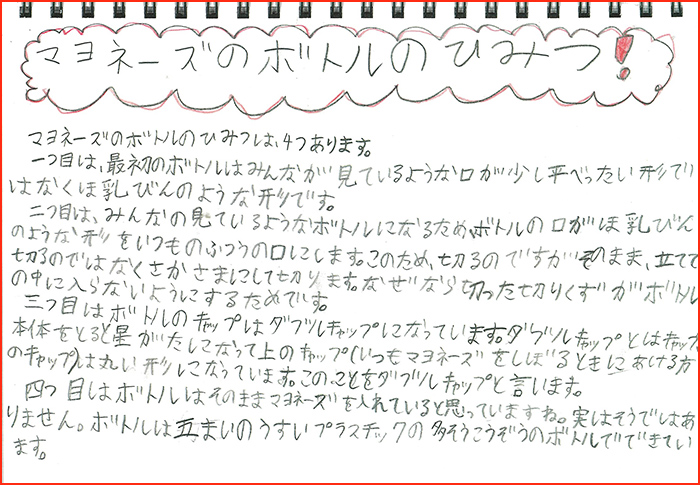 マヨネーズのボトルのひみつ!
マヨネーズのボトルのひみつは、4つあります。
一つ目は、最初のボトルはみんなが見ているような口が少し平べったい形で
はなくほ乳びんのような形です。
二つ目は、みんなの見ているようなボトルになるため、ボトルの口がほ乳びん
のような形をいつものふつうの口にします。このため、切るのですがそのまま、立てて
切るのではなくさかさまにして切ります。なぜなら切った切りくずがボトル
の中に入らないようにするためです。
三つ目はボトルのキャップはダブルキャップになっています。ダブルキャップとはキャップ
本体をとると星がたになって上のキャップ(いつもマヨネーズをしぼるときにあける方
のキャップ)は丸い形になっています。このことをダブルキャップと言います。
四つ目はボトルはそのままマヨネーズを入れていると思っていますね。実はそうではあ
りません。ボトルは五まいのうすいプラスチックの多そうこうぞうのボトルでできてい
ます。